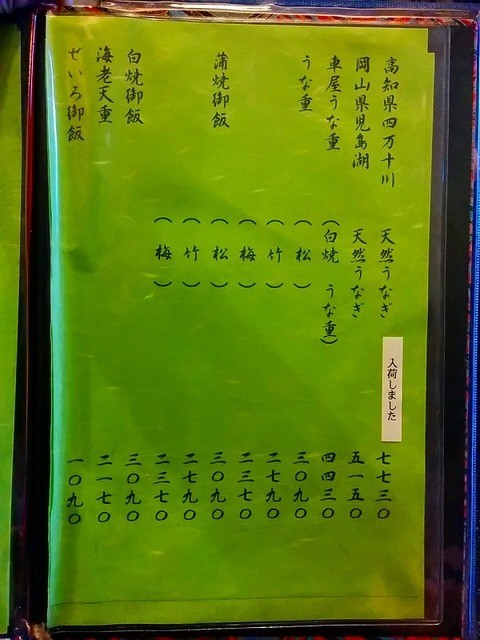 高知県四万十川 天然うなぎ 入荷しました 七七三〇
岡山県児島湖 天然うなぎ 五一五〇
車屋うな重 (白焼 うな重) 四四三〇
うな重 (松) 三〇九〇
(竹) 二七九〇
(梅) 二三七〇
蒲焼御飯 (松) 三〇九〇
(竹) 二七九〇
(梅) 二三七〇
白焼御飯 三〇九〇
海老天重 二一七〇
せいろ御飯 一〇九〇